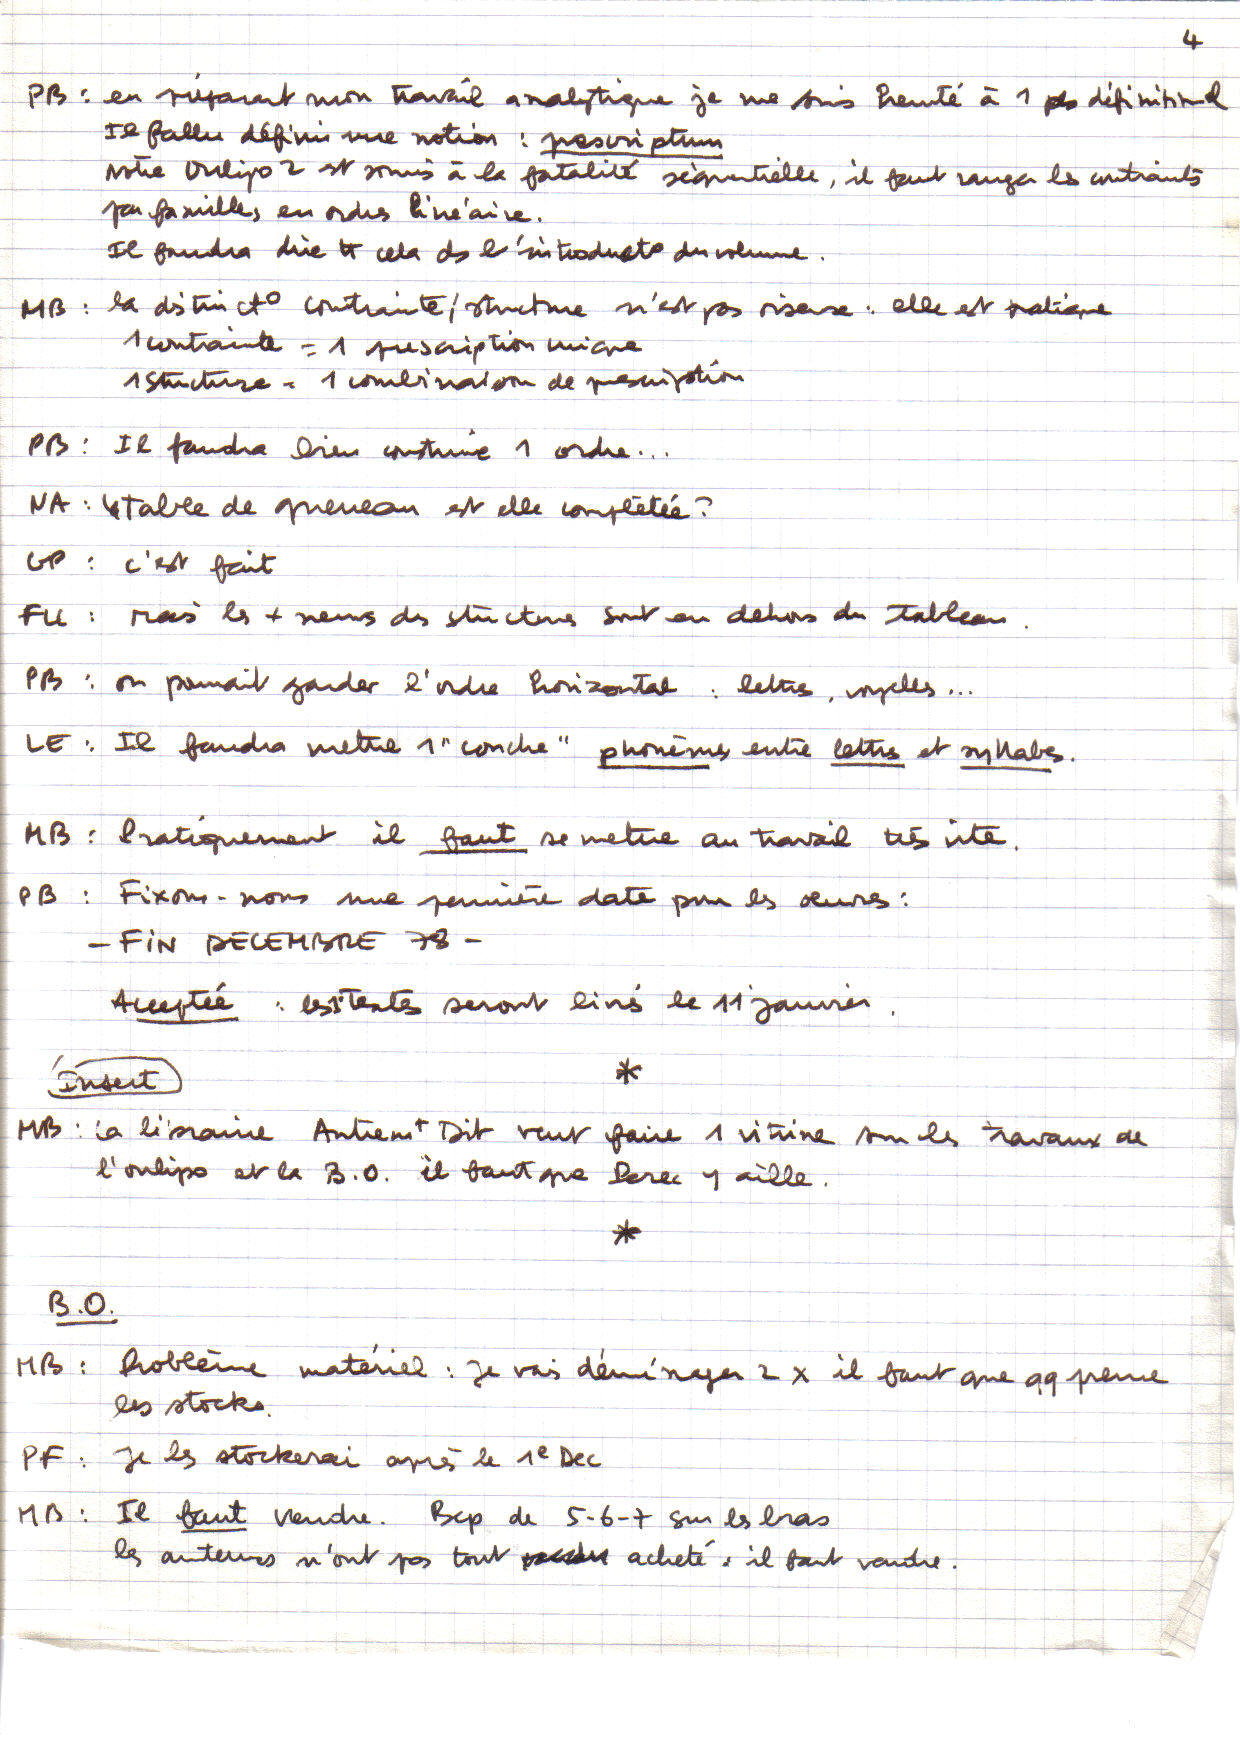 4
PB : en préparant mon travail analytique je me suis heurté à 1 pb définitionnel
Il fallu définir une notion : prescriptum
Notre Oulipo 2 est soumis à la fatalité séquentielle, il faut ranger les contraintes
par familles, en ordre linéaire.
Il faudra dire tt cela ds l'introducto du volume.
MB : la distincto contrainte/structure n'est pas oiseuse : elle est pratique
1 contrainte = 1 prescription unique
1 structure = 1 combinaison de prescription
PB : Il faudra bien construire 1 ordre...
NA : la table de queneau est elle complétée ?
GP : c'est fait
FLL : mais les + neuves des structures sont en dehors du tableau.
PB : on pourrait garder l'ordre horizontal : lettres, voyelles...
LE : Il faudra mettre 1 "couche" phonèmes entre lettres et syllabes.
MB : Pratiquement il faut se mettre au travail très vite.
PB : Fixons-nous une première date pour les œuvres :
- FIN DECEMBRE 78 -
Acceptée : les textes seront livrés le 11 janvier.
Insert
*
MB : la librairie Autremt Dit veut faire 1 vitrine sur les travaux de
l'oulipo et la B.O. il faut que Perec y aille.
*
B.O.
MB : Problème matériel : je vais déménager 2 x il faut que qq prenne
les stocks.
PF : Je les stockerai après le 1e Dec
MB : Il faut vendre. Bcp de 5-6-7 sur les bras
les auteurs n'ont pas tout acheté : il faut vendre.